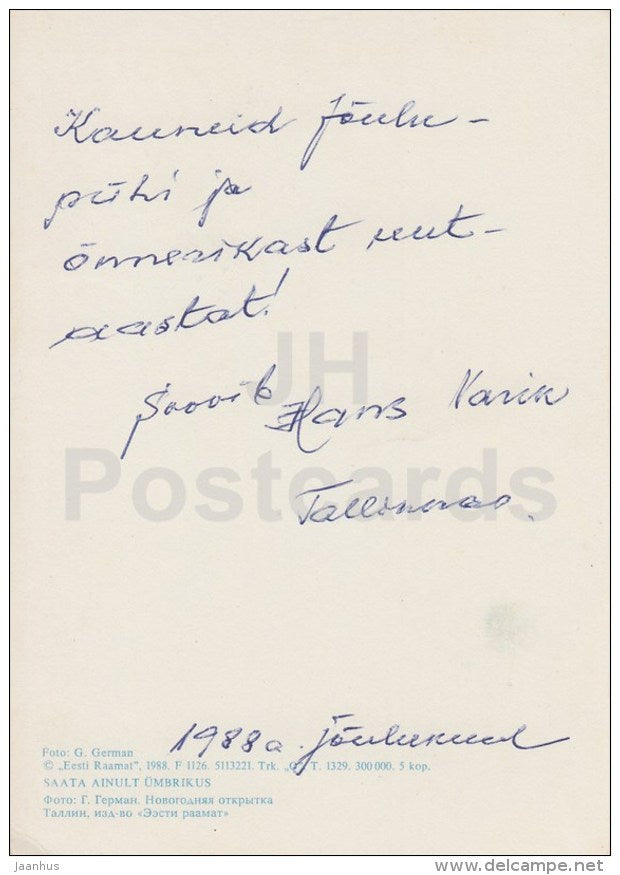 Kauneid jõulu-
pühi ja
õnnerikast uut-
aastat!
Soovib Hans Varik
Tallinnas.
1988a. jõulukuul
Foto: G. German
© „Eesti Raamat”, 1988. F 1126. 5113221. Trk. T. 1329. 300 000. 5 kop.
SAATA AINULT ÜMBRIKUS
Фото: Г. Герман. Новогодняя открытка
Таллин, изд-во «Ээсти раамат»
JH
Postcards
jaanhus
www.delcampe.net